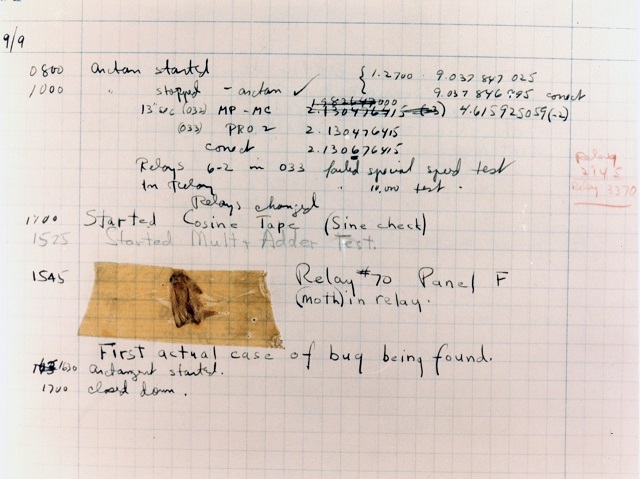 9/9
0800 Arctan started
1000 " stopped - arctan ✓ { 1.2700 9.037 847 025
9.037 846 995 conect
13"uc (032) MP - MC 2.130476415 (-3) 4.615925059(-2)
(033) PRO 2 2.130476415
conect 2.130676415
Relays 6-2 in 033 failed special speed test
In Relay " 10,000 test .
Relays changed
Relay
2145
Relay 3370
1700 Started Cosine Tape (Sine check)
1525 Started Mult + Adder Test.
1545 Relay #70 Panel F
(moth) in relay.
First actual case of bug being found.
1630 Arctangent started.
1700 closed down .